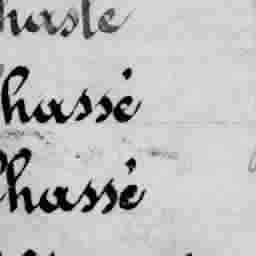 haste
hassé
hassé